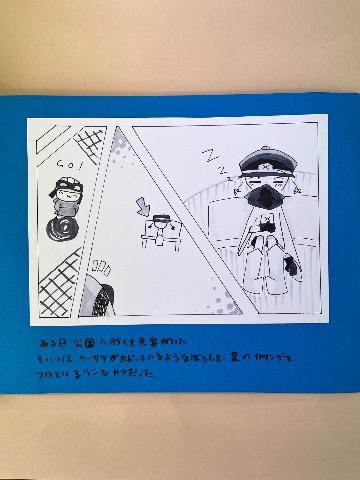 GO!
Z Z Z
ある日 公園に行くと先客がいた。
そいつは、ケーサツがカぶっているようなぼうしと、星のイヤリングを
つけているヘンなやつだった。